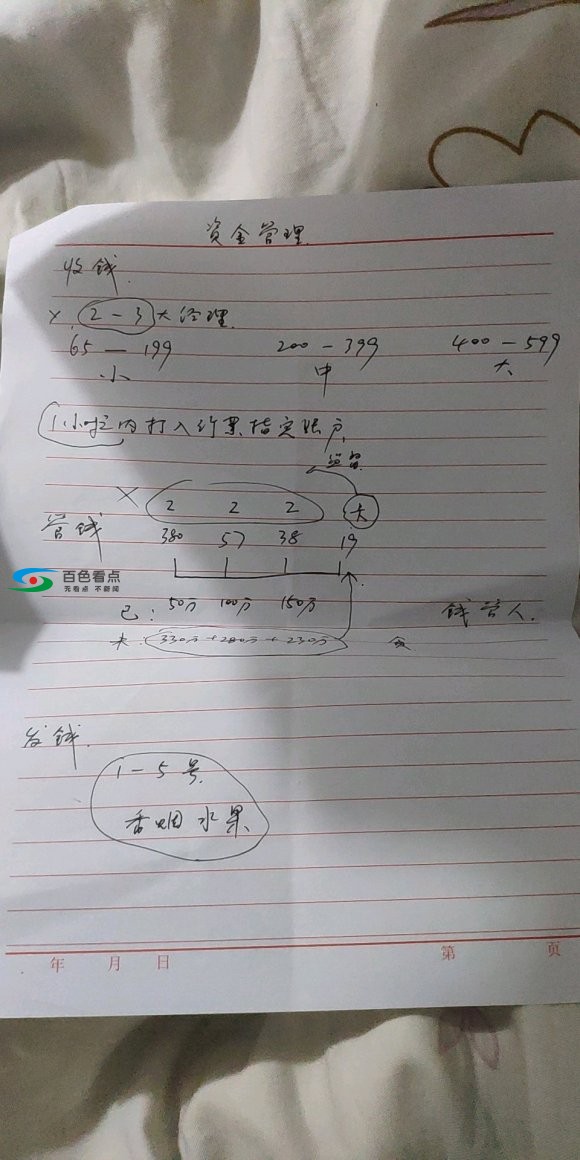 资金管理
收钱.
× 2－3 大经理.
65 — 199 200 － 399 400 － 599
小 中 大
1小时内打入行业指定账户.
监督
× 2 2 2 大
管钱 380 57 38 19
百色看点
无看点 不新闻
已: 50万 100万 150万 钱管人.
未: 330万+280万+230万
发钱.
1－5号.
香烟 水果
年 月 日 第 页